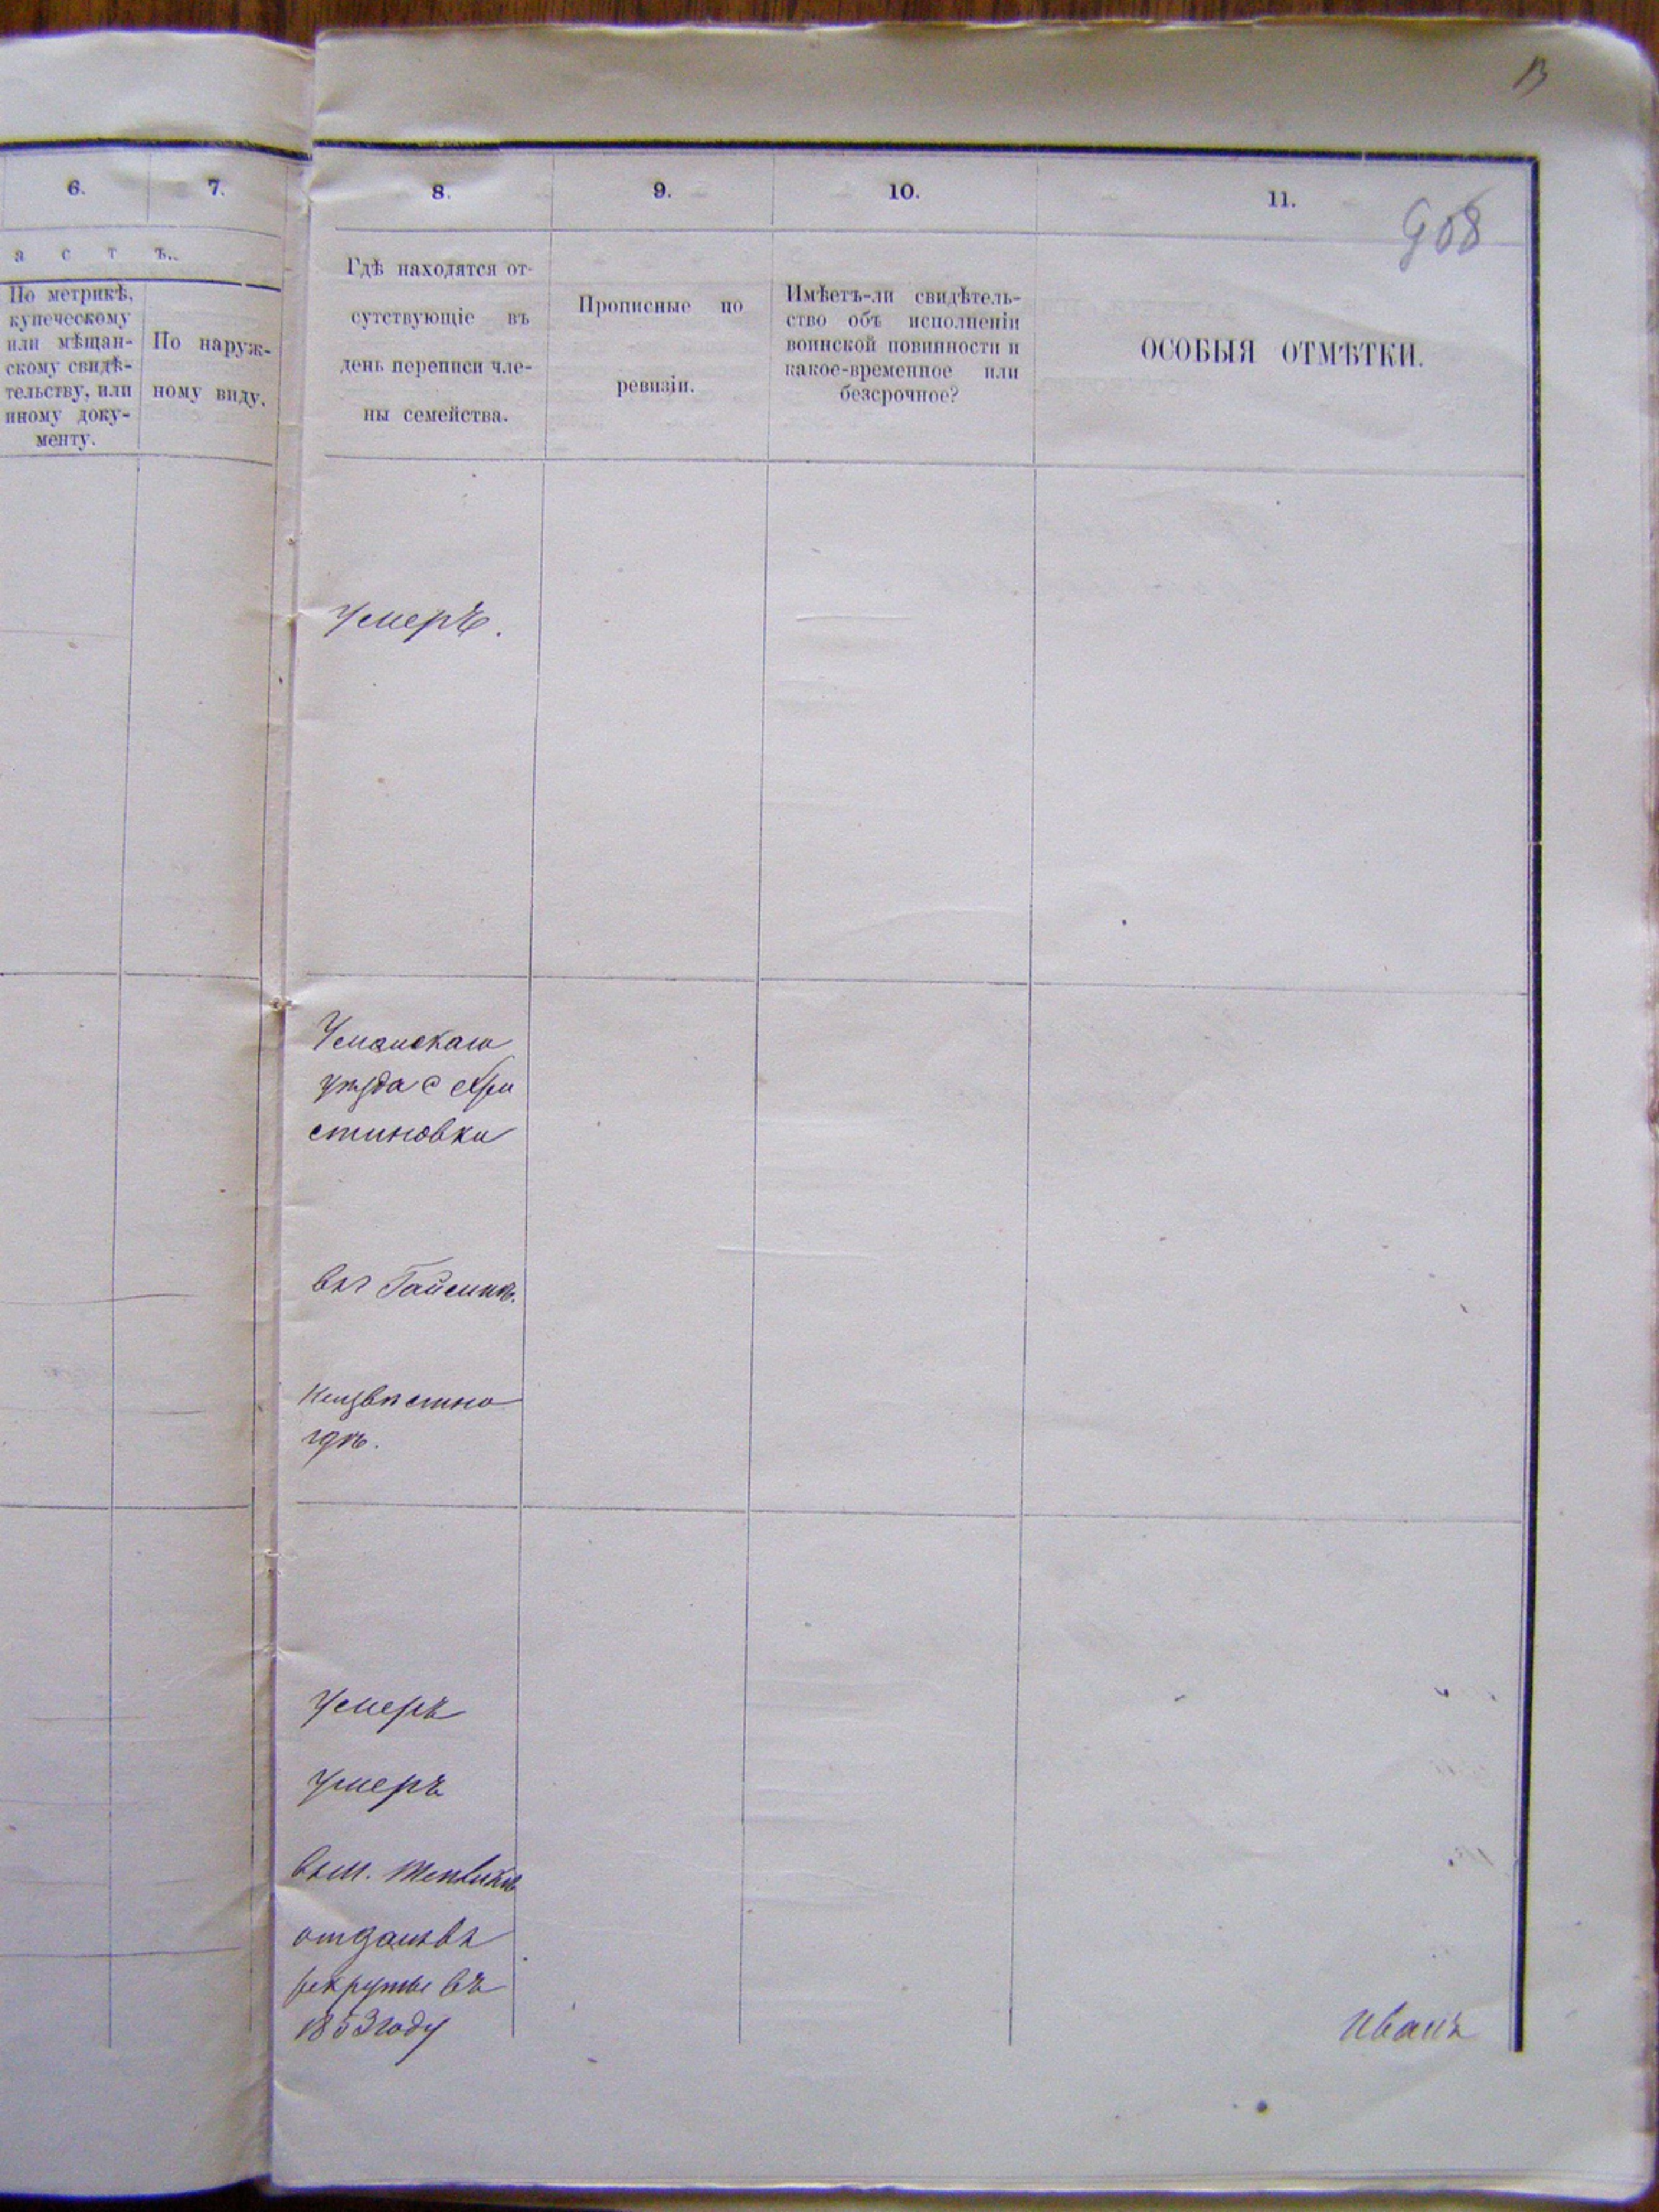 13
6.
7.
8.
9.
10.
11.
908
а с т ъ.
По метрикѣ,
купеческому
или мѣщан-
скому свидѣ-
тельству, или
иному доку-
менту.
По наруж-
ному виду.
Гдѣ находятся от-
сутствующіе въ
день переписи чле-
ны семейства.
Прописные по
ревизіи.
Имѣетъ-ли свидѣтель-
ство объ исполненіи
воинской повинности и
какое-временное или
безсрочное?
ОСОБЫЯ ОТМѢТКИ.
Умеръ.
Уманскаго
уѣзда с Хри
стиновки
въ г Гайсинѣ.
Неизвѣстно
гдѣ.
Умеръ
Умеръ
въ м. Тепликѣ
отданъ въ
рекруты въ
1853 году
Иванъ